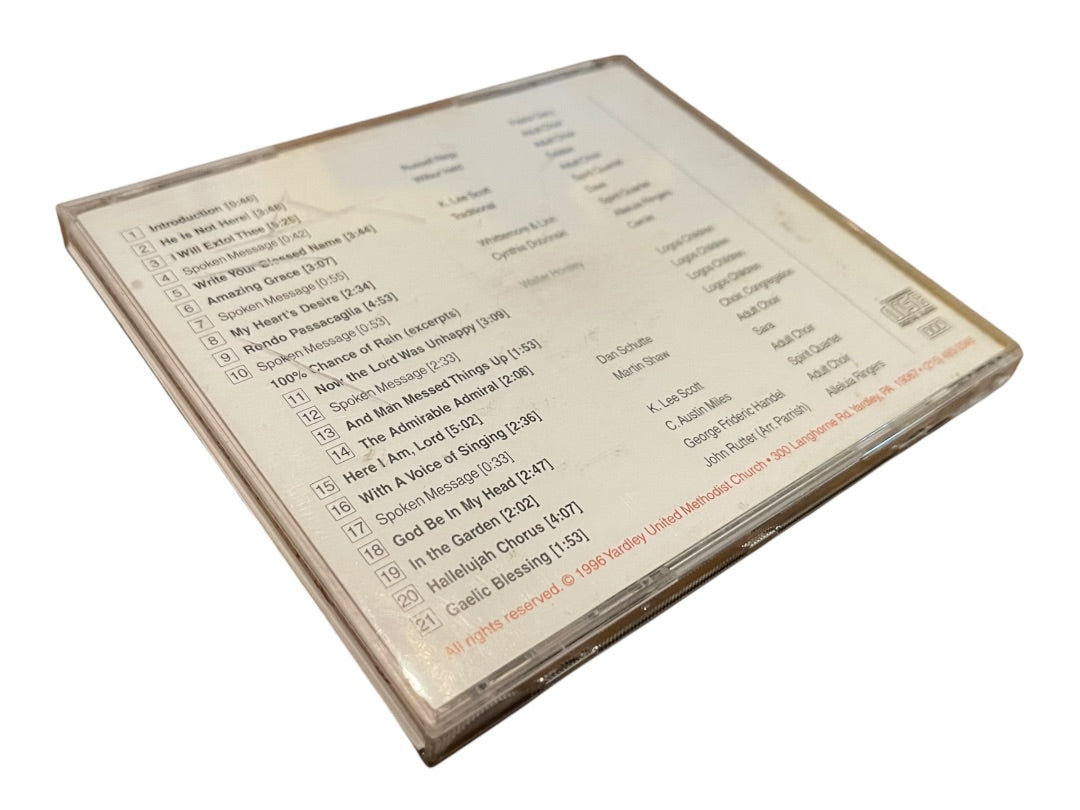 1 Introduction [0:46]
2 He Is Not Here! [3:48] Adult Choir
3 I Will Extol Thee [5:25] Wilbur Held Adult Choir
4 Spoken Message [0:42]
5 Write Your Blessed Name [3:44] K. Lee Scott Adult Choir
6 Amazing Grace [3:07] Traditional Spirit Quartet
7 Spoken Message [0:55] Dave
8 My Heart's Desire [2:34] Whittemore & Linn Spirit Quartet
9 Rondo Passacaglia [4:53] Cynthia Dobrinski Alleluia Ringers
10 Spoken Message [0:53] Carrie
100% Chance of Rain (excerpts) Walter Horsley
11 Now the Lord Was Unhappy [3:09] Logos Children
12 Spoken Message [2:33]
13 And Man Messed Things Up [1:53] Logos Children
14 The Admirable Admiral [2:08] Logos Children
15 Here I Am, Lord [5:02] Dan Schutte Choir, Congregation
16 With A Voice of Singing [2:36] Martin Shaw Adult Choir
17 Spoken Message [0:33] Sara
18 God Be In My Head [2:47] K. Lee Scott Adult Choir
19 In the Garden [2:02] C. Austin Miles Spirit Quartet
20 Hallelujah Chorus [4:07] George Frideric Handel Adult Choir
21 Gaelic Blessing [1:53] John Rutter (Arr. Parrish) Alleluia Ringers
All rights reserved. © 1996 Yardley United Methodist Church • 300 Langhorne Rd. Yardley, PA. 19067 • (215)
DDD